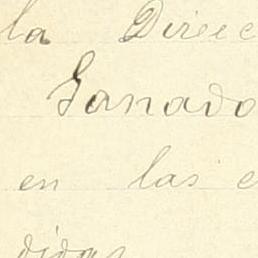 la Direc
Ganado
en las e
didas